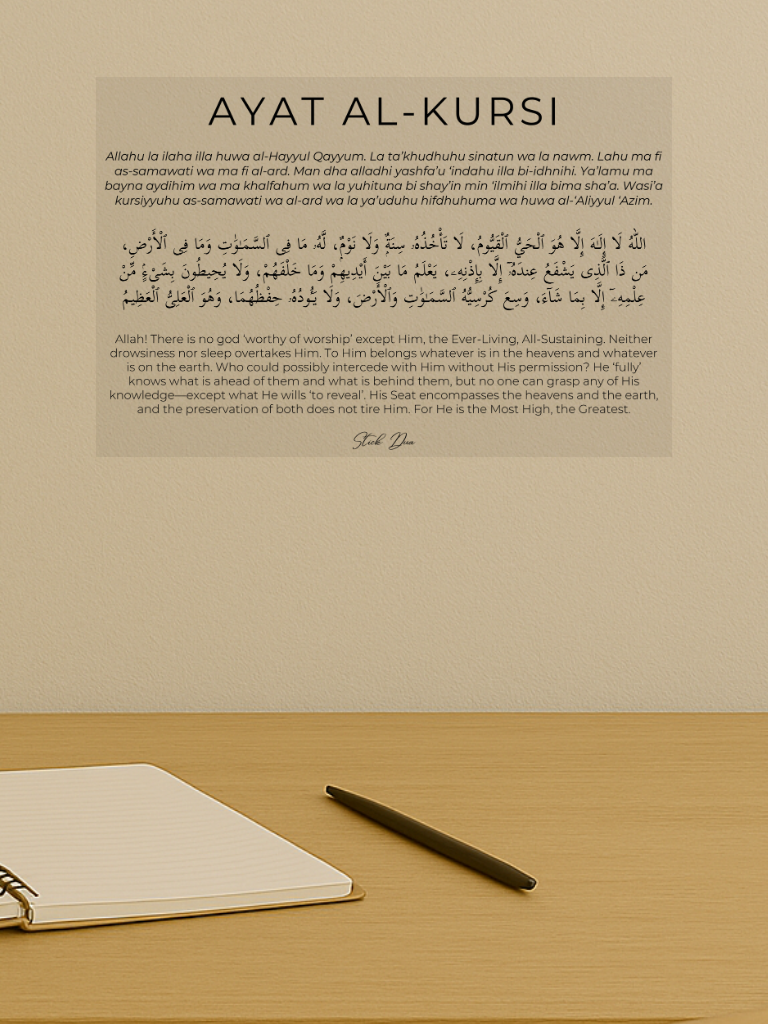 AYAT AL-KURSI
Allahu la ilaha illa huwa al-Hayyul Qayyum. La ta’khudhuhu sinatun wa la nawm. Lahu ma fi
as-samawati wa ma fi al-ard. Man dha alladhi yashfa’u ‘indahu illa bi-idhnihi. Ya’lamu ma
bayna aydihim wa ma khalfahum wa la yuhituna bi shay’in min ‘ilmihi illa bima sha’a. Wasi’a
kursiyyuhu as-samawati wa al-ard wa la ya’uduhu hifdhuhuma wa huwa al-‘Aliyyul ‘Azim.
اللَّهُ لَا إِلَـٰهَ إِلَّا هُوَ ٱلْحَيُّ ٱلْقَيُّومُ، لَا تَأْخُذُهُۥ سِنَةٌۭ وَلَا نَوْمٌۭ، لَّهُۥ مَا فِى ٱلسَّمَـٰوَٰتِ وَمَا فِى ٱلْأَرْضِ،
مَن ذَا ٱلَّذِى يَشْفَعُ عِندَهُۥٓ إِلَّا بِإِذْنِهِۦ، يَعْلَمُ مَا بَيْنَ أَيْدِيهِمْ وَمَا خَلْفَهُمْ، وَلَا يُحِيطُونَ بِشَىْءٍۢ مِّنْ
عِلْمِهِۦٓ إِلَّا بِمَا شَآءَ، وَسِعَ كُرْسِيُّهُ ٱلسَّمَـٰوَٰتِ وَٱلْأَرْضَ، وَلَا يَـُٔودُهُۥ حِفْظُهُمَا، وَهُوَ ٱلْعَلِىُّ ٱلْعَظِيمُ
Allah! There is no god ‘worthy of worship’ except Him, the Ever-Living, All-Sustaining. Neither
drowsiness nor sleep overtakes Him. To Him belongs whatever is in the heavens and whatever
is on the earth. Who could possibly intercede with Him without His permission? He ‘fully’
knows what is ahead of them and what is behind them, but no one can grasp any of His
knowledge—except what He wills ‘to reveal’. His Seat encompasses the heavens and the earth,
and the preservation of both does not tire Him. For He is the Most High, the Greatest.
Stick Dua